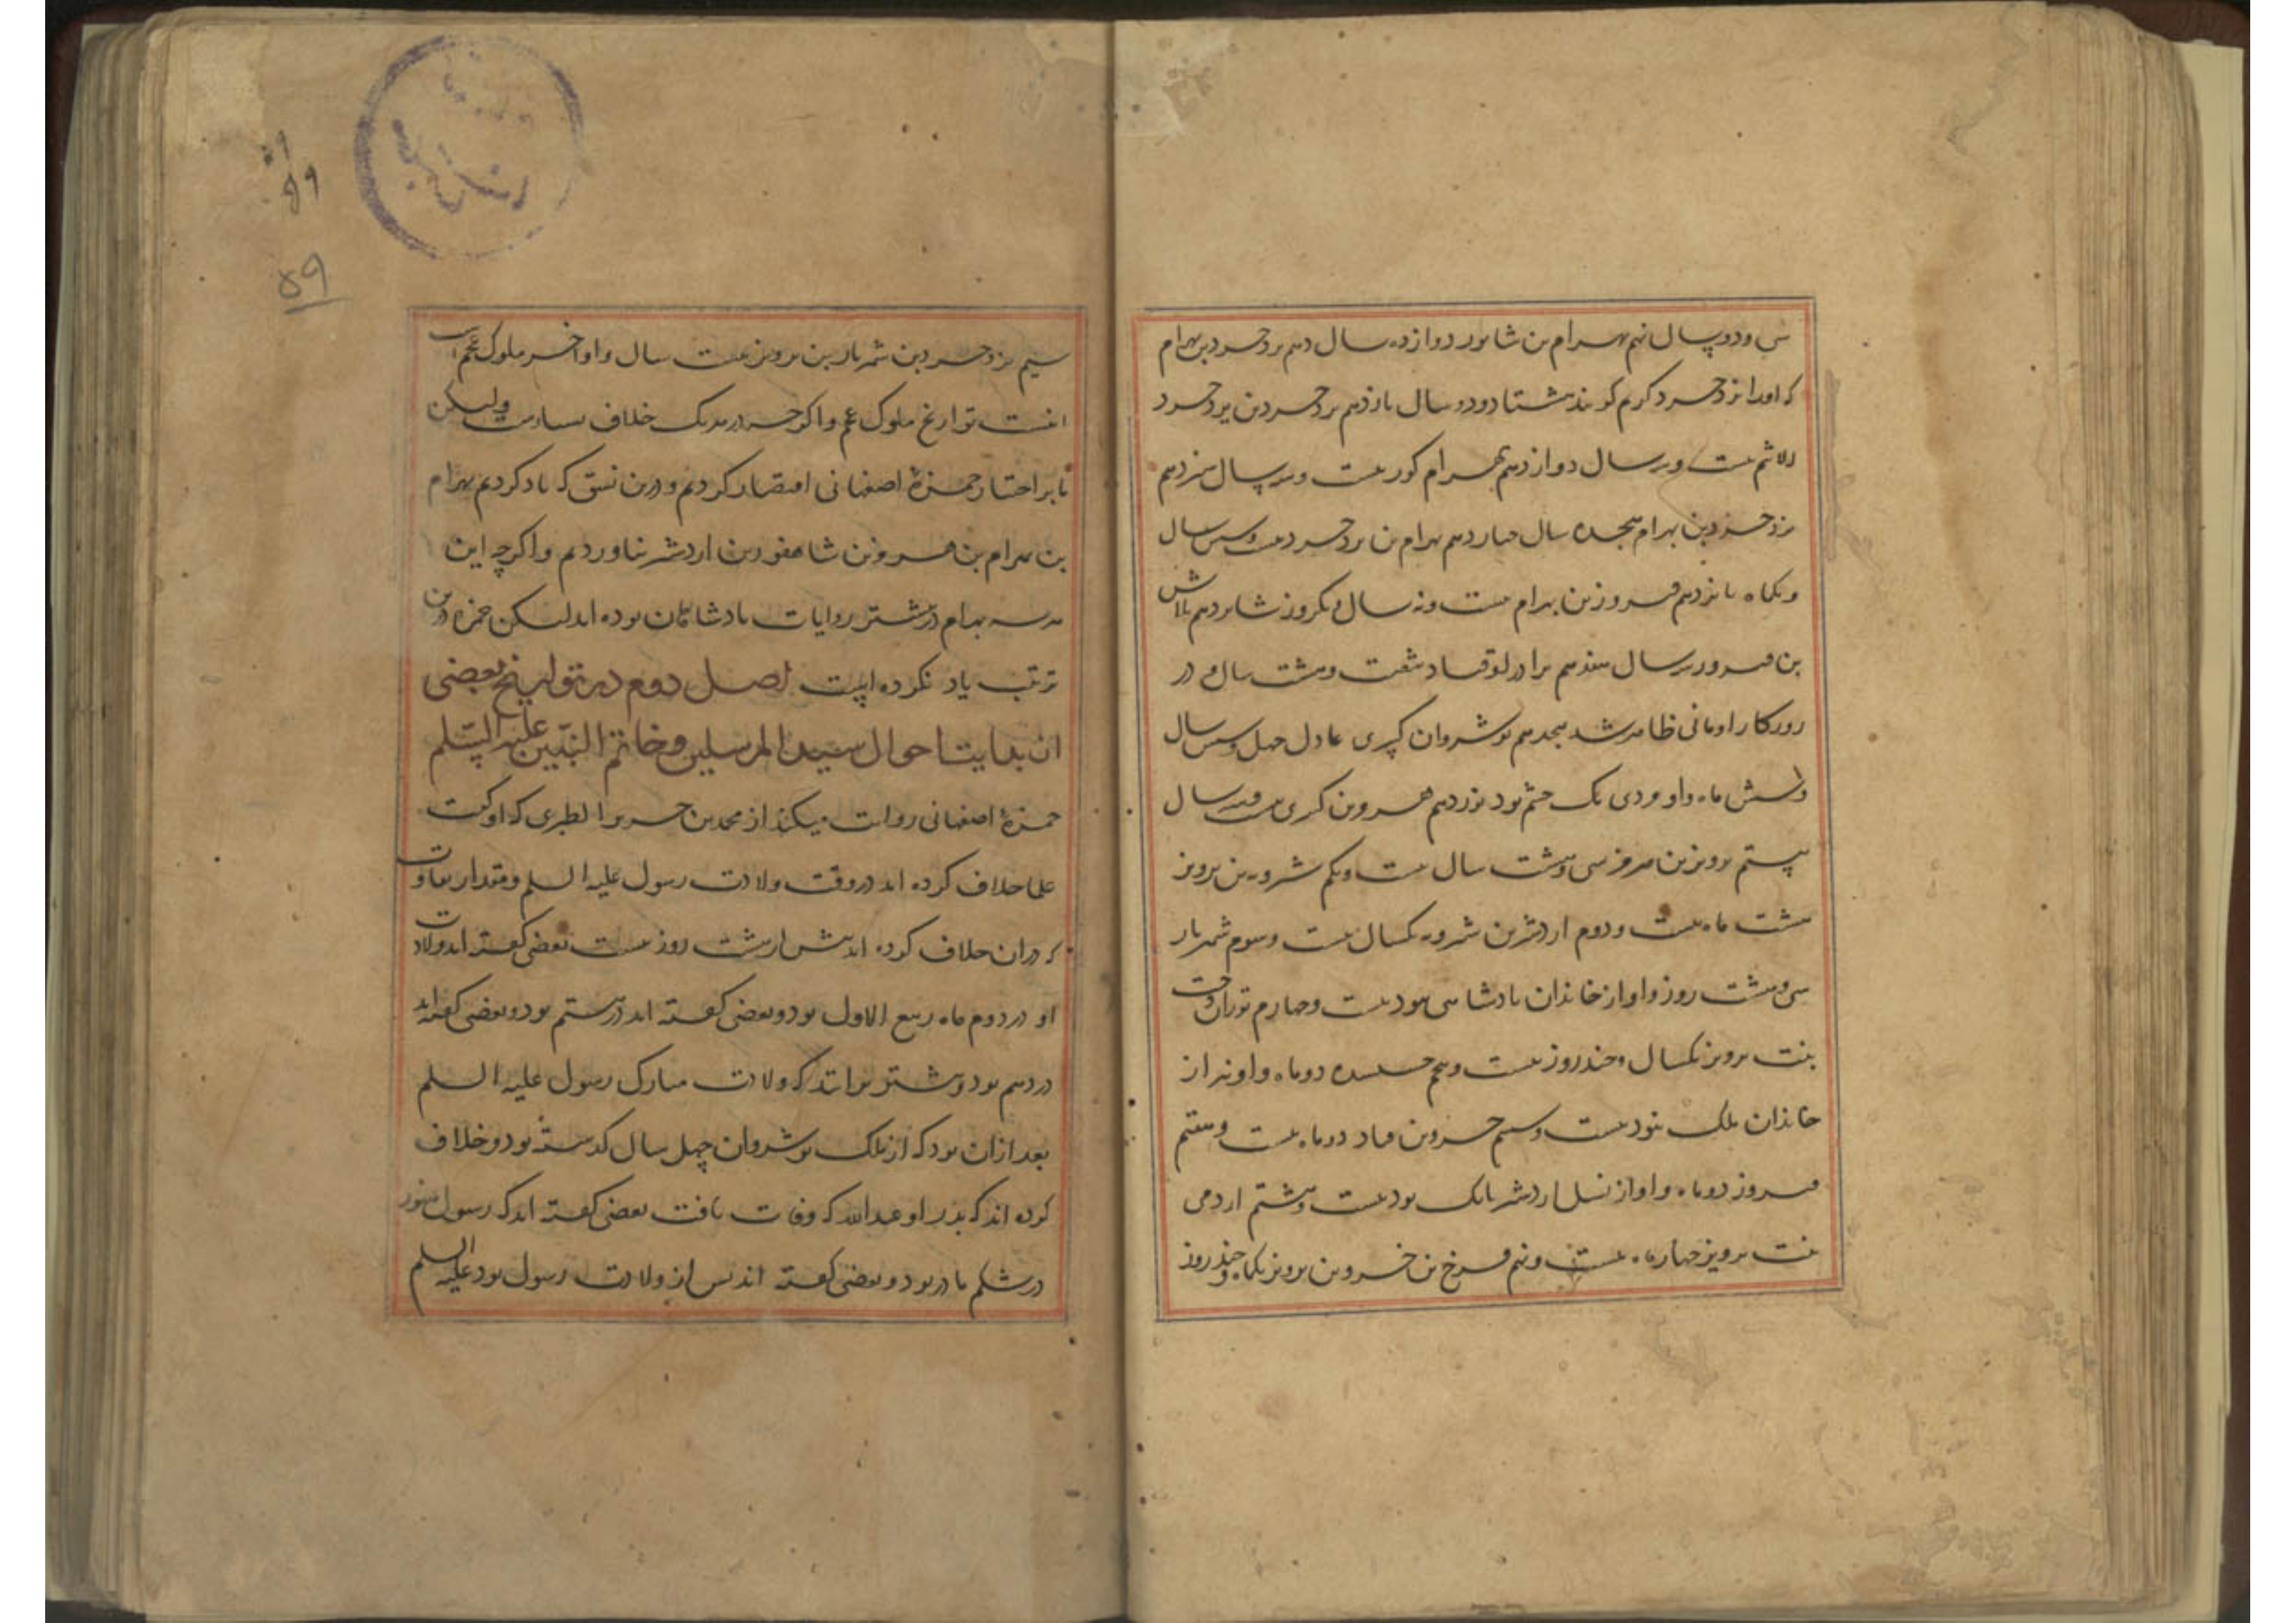 سی ودو سال نهم بهرام بن شابور دوازده سال دهم یزدجرد بن بهرام
که اورا یزدجرد کرم کویند هشتاد ودو سال یازدهم یزدجرد بن یزدجرد
الاثم بیست وسه سال دوازدهم بهرام کور بیست وسه سال سیزدهم
یزدجرد بن بهرام هجده سال چهاردهم بهرام بن یزدجرد بیست وشش سال
ویکماه پانزدهم فیروز بن بهرام بیست ونه سال ویکروز شانزدهم بلاش
بن فیروز سه سال هفدهم برادر او قباد شصت وهشت سال و در
روزکار او مانی ظاهر شد هجدهم نوشروان کسری عادل چهل وشش سال
وشش ماه واو یک چشم بود نوزدهم هرمز بن کسری بیست وسه سال
بیستم پرویز بن هرمز سی وهشت سال بیست ویکم شرویه بن پرویز
هشت ماه بیست ودوم اردشیر بن شرویه یکسال بیست وسوم شهریار
سی وهشت روز واو از خاندان پادشاهی نبود بیست وچهارم توران دخت
بنت پرویز یکسال وچند روز بیست وپنجم دو ماه واو نیز از
خاندان ملک نبود بیست وششم خسرو بن قباد دو ماه بیست وهفتم
فیروز دو ماه واو از نسل اردشیر بابک بود بیست وهشتم ازرمی
بنت پرویز چهار ماه بیست ونهم فرخ بن خسرو بن پرویز یکماه وچند روز
۵۹
سیم یزدجرد بن شهریار بن پرویز بیست سال واو آخر ملوک عجم است
اینست تواریخ ملوک عجم واکرچه در هر یک خلاف بسیارست ولیکن
ما بر اختیار حمزهٔ اصفهانی اقتصار کردیم ودرین نسق که یاد کردیم بهرام
بن بهرام بن هرمز بن شاهفور بن اردشیر نیاوردیم واکرچه این
هر سه بهرام در بیشتر روایات پادشاهان بوده اند لیکن حمزه درین
ترتیب یاد نکرده است فصل دوم در تواریخ بعضی
از بدایت احوال سید المرسلین وخاتم النبیین علیه السلم
حمزهٔ اصفهانی روایت میکند از محمد بن جریر الطبری که او کفت
علما خلاف کرده اند در وقت ولادت رسول علیه السلم ومقدار تفاوت
که دران خلاف کرده اند بیش از هشت روز نیست بعضی کفته اند ولادت
او در دوم ماه ربیع الاول بود وبعضی کفته اند در هشتم بود وبعضی کفته اند
در دهم بود وبیشتر برانند که ولادت مبارک رسول علیه السلم
بعد ازان بود که از ملک نوشروان چهل سال کذشته بود وخلاف
کرده اند که پدر او عبدالله که وفات یافت بعضی کفته اند که رسول هنوز
در شکم مادر بود وبعضی کفته اند پس از ولادت رسول بود علیه السلم